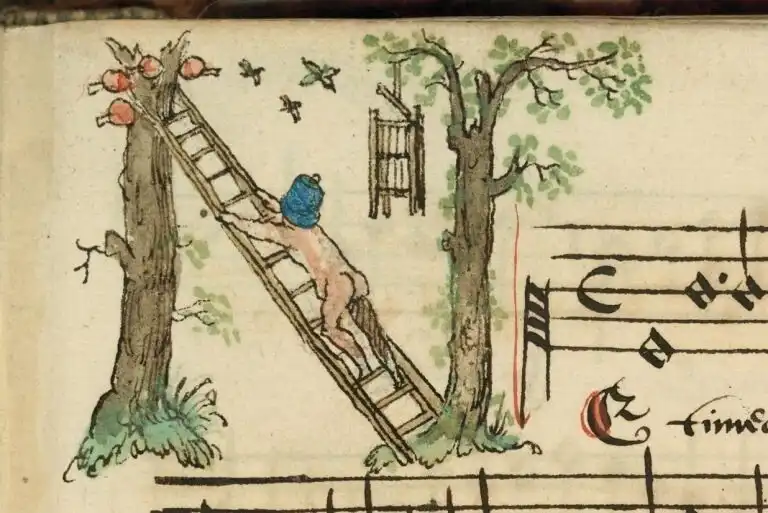 Et time